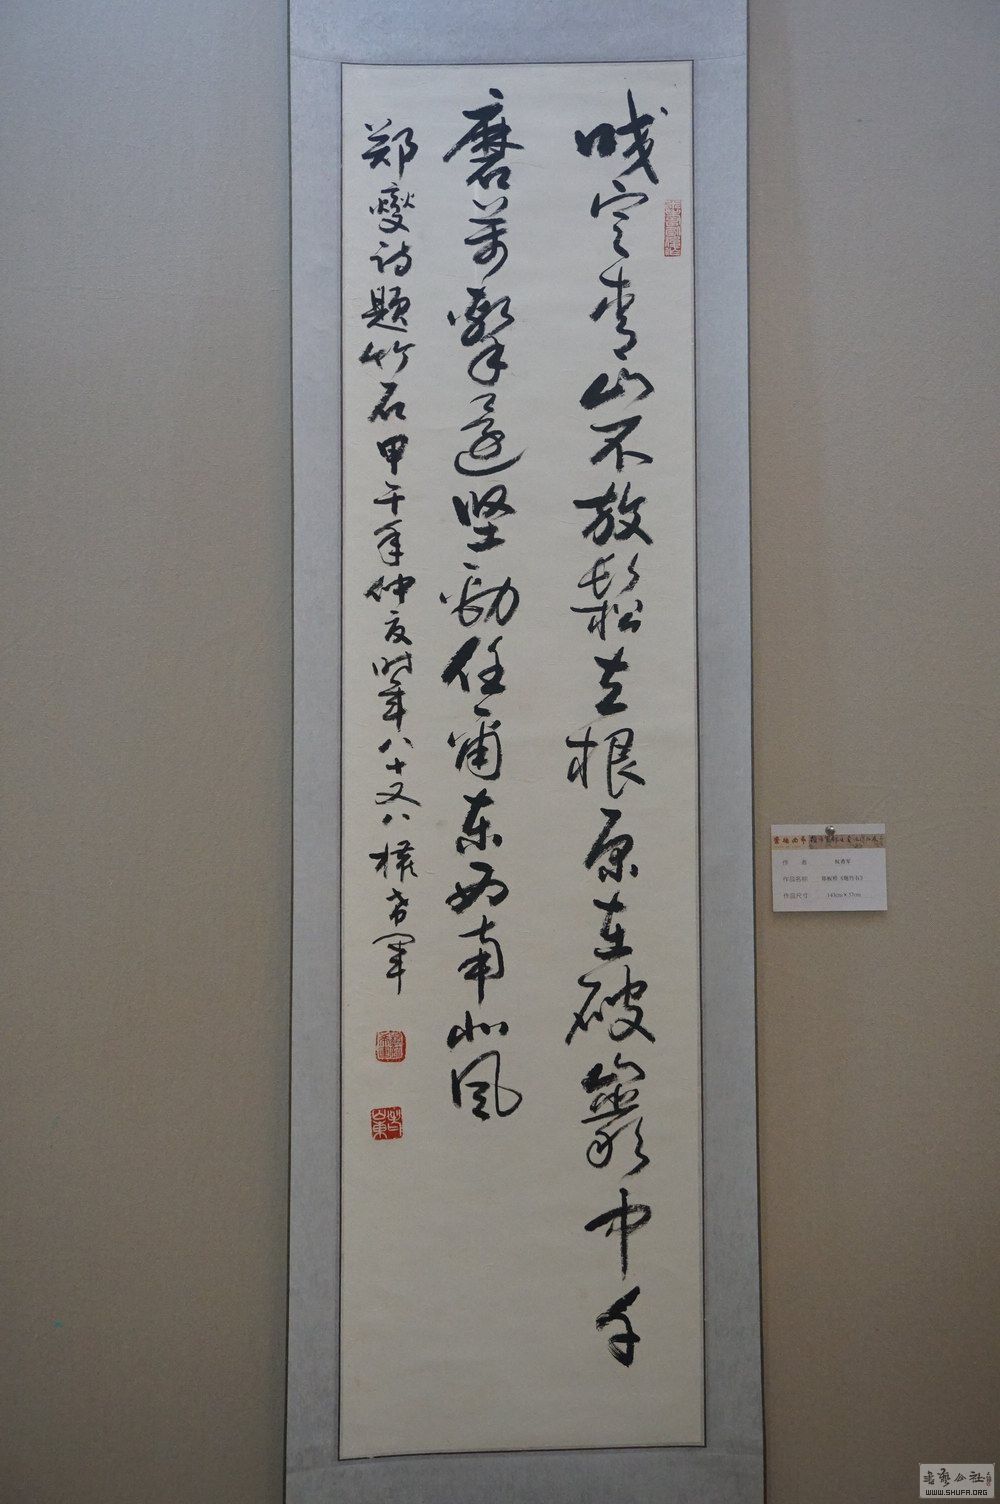 咬定青山不放鬆立根原在破巖中千
磨萬擊還坚劲任爾東西南北風
郑燮诗题竹石甲午年仲夏时年八十又八權希军
作 者 权希军
作品名称: 郑板桥《题竹石》
作品尺寸:
书法公社
WWW.SHUFA.ORG